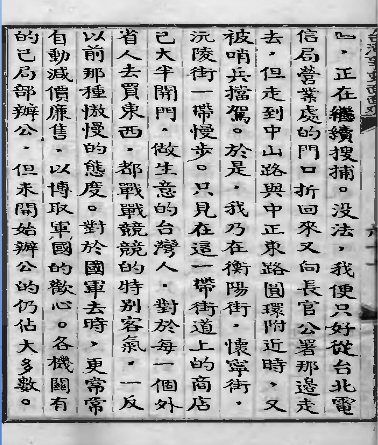 』，正在繼續搜捕。没法，我便只好從台北電
信局營業處的門口折回來又向長官公署那邊走
去，但走到中山路與中正東路圓環附近時，又
被哨兵擋駕。於是，我乃在衡陽街，懷寧街，
沅陵街一帶慢步。只見在這一帶街道上的商店
已大半開門，做生意的台灣人，對於每一個外
省人去買東西，都戰戰競競的特别客氣，一反
以前那種傲慢的態度。對於國軍去時，更常常
自動減價廉售，以博取軍國的歡心。各機關有
的已局部辦公，但未開始辦公的仍佔大多數。